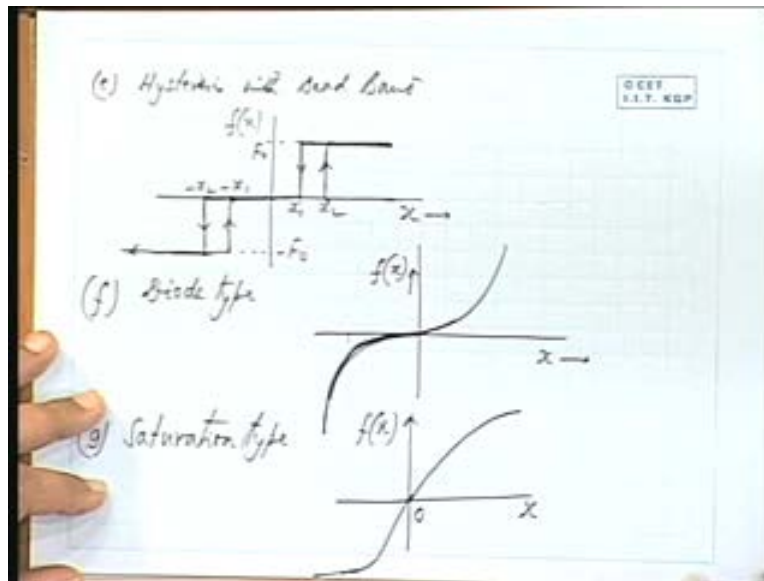 (e) Hysteresis with Dead Band
© CET
I.I.T. KGP
f(x)
F₀
-x₂ -x₁
x₁ x₂ x →
-F₀
(f) Diode type
f(x)
x →
(g) Saturation type
f(x)
0 x